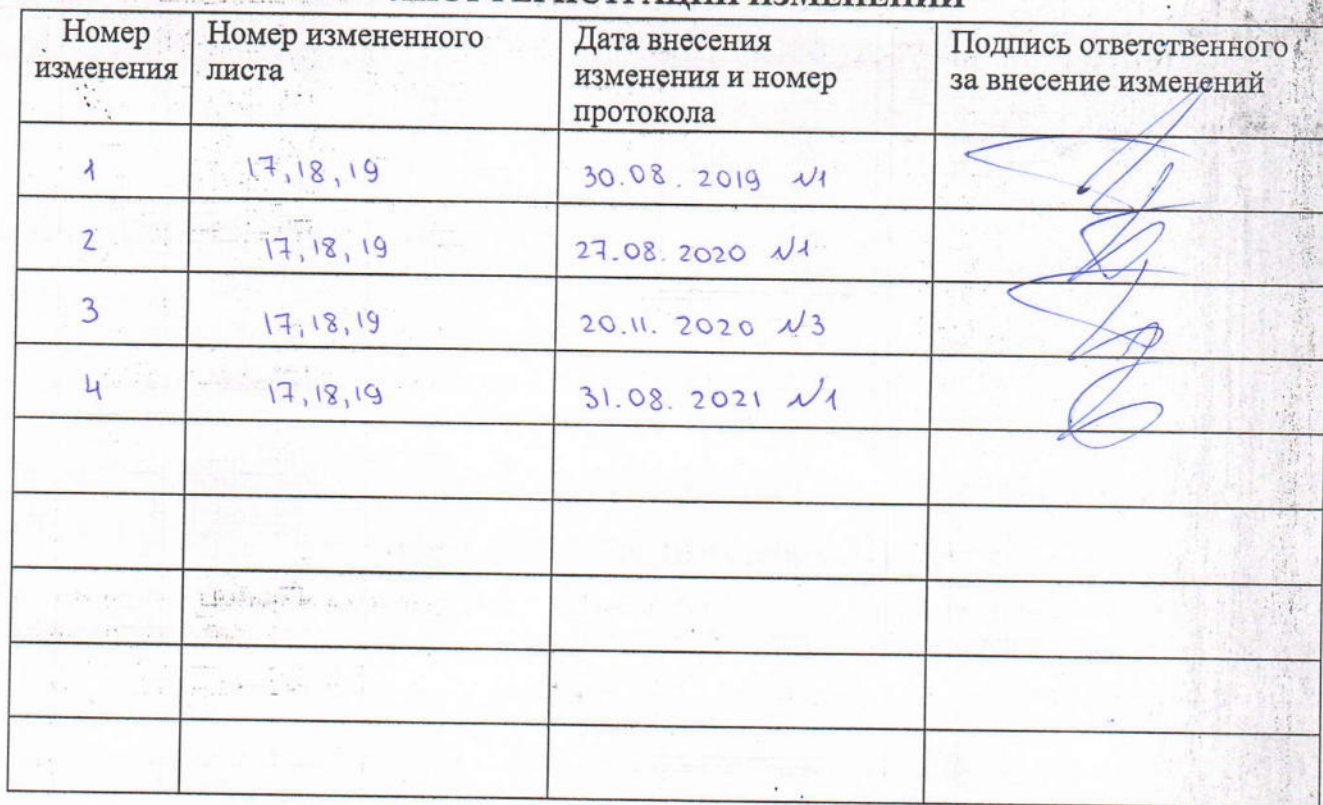 РЕГИСТРАЦИИ ИЗМЕНЕНИЙ
Номер изменения
Номер измененного листа
Дата внесения изменения и номер протокола
Подпись ответственного за внесение изменений
1 17,18,19 30.08.2019 №1
2 17,18,19 27.08.2020 №1
3 17,18,19 20.11.2020 №3
4 17,18,19 31.08.2021 №1